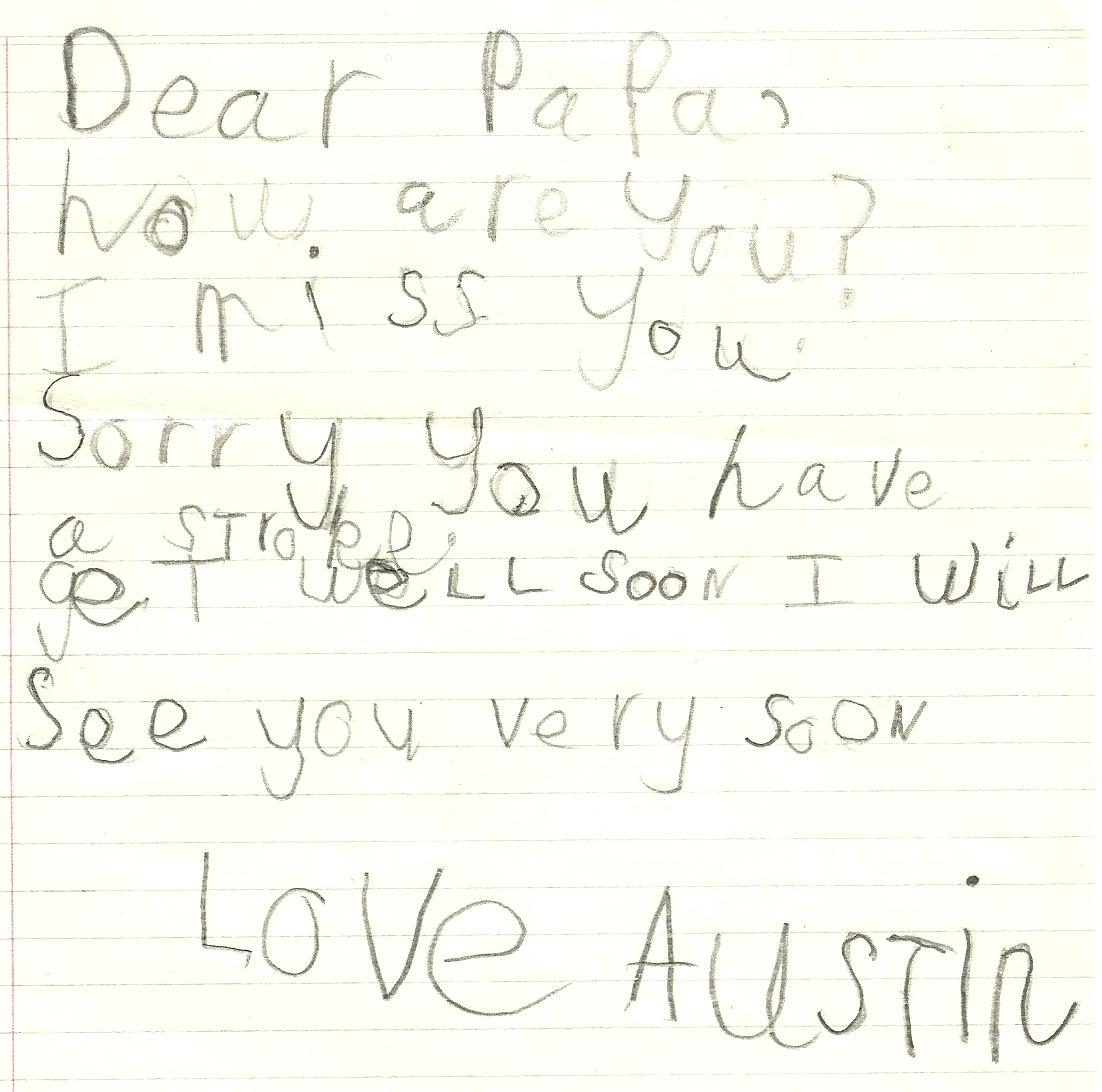 Dear Papa,
how are you?
I miss you.
Sorry you have
a STroke.
geT weLL sooN I WiLL
See you very sooN
LoVe AUSTin